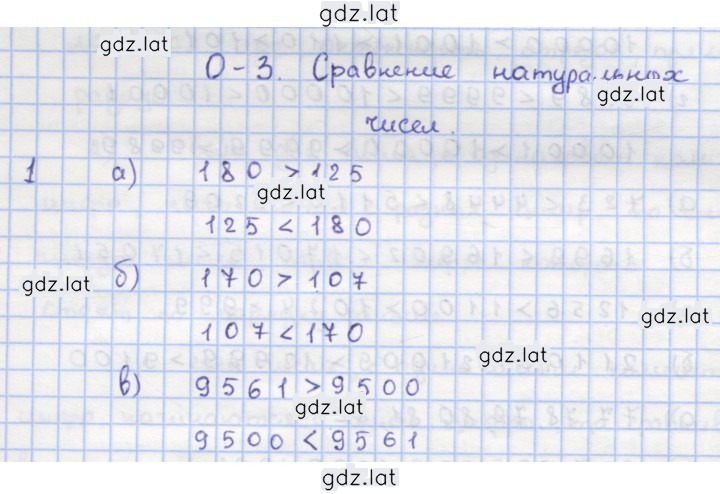 gdz.lat
gdz.lat
О-3. Сравнение натуральных
gdz.lat
чисел.
1 а) 180 > 125
gdz.lat
125 < 180
gdz.lat б) 170 > 107
gdz.lat
107 < 170
gdz.lat
в) 9561 > 9500
gdz.lat
9500 < 9561
gdz.lat